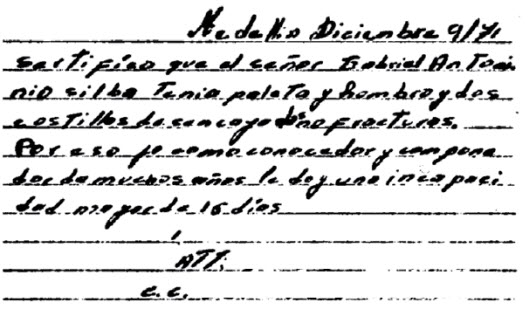 Medellin Diciembre 9/71
certifico que el señor Gabriel Antoni
nio silba Tenia paleta y hombro y dos
costillas desencajadas no fracturas.
Por eso yo como conocedor y compone
dor de muchos años le doy una incapaci
dad mayor de 15 dias
ATT.
c.c.